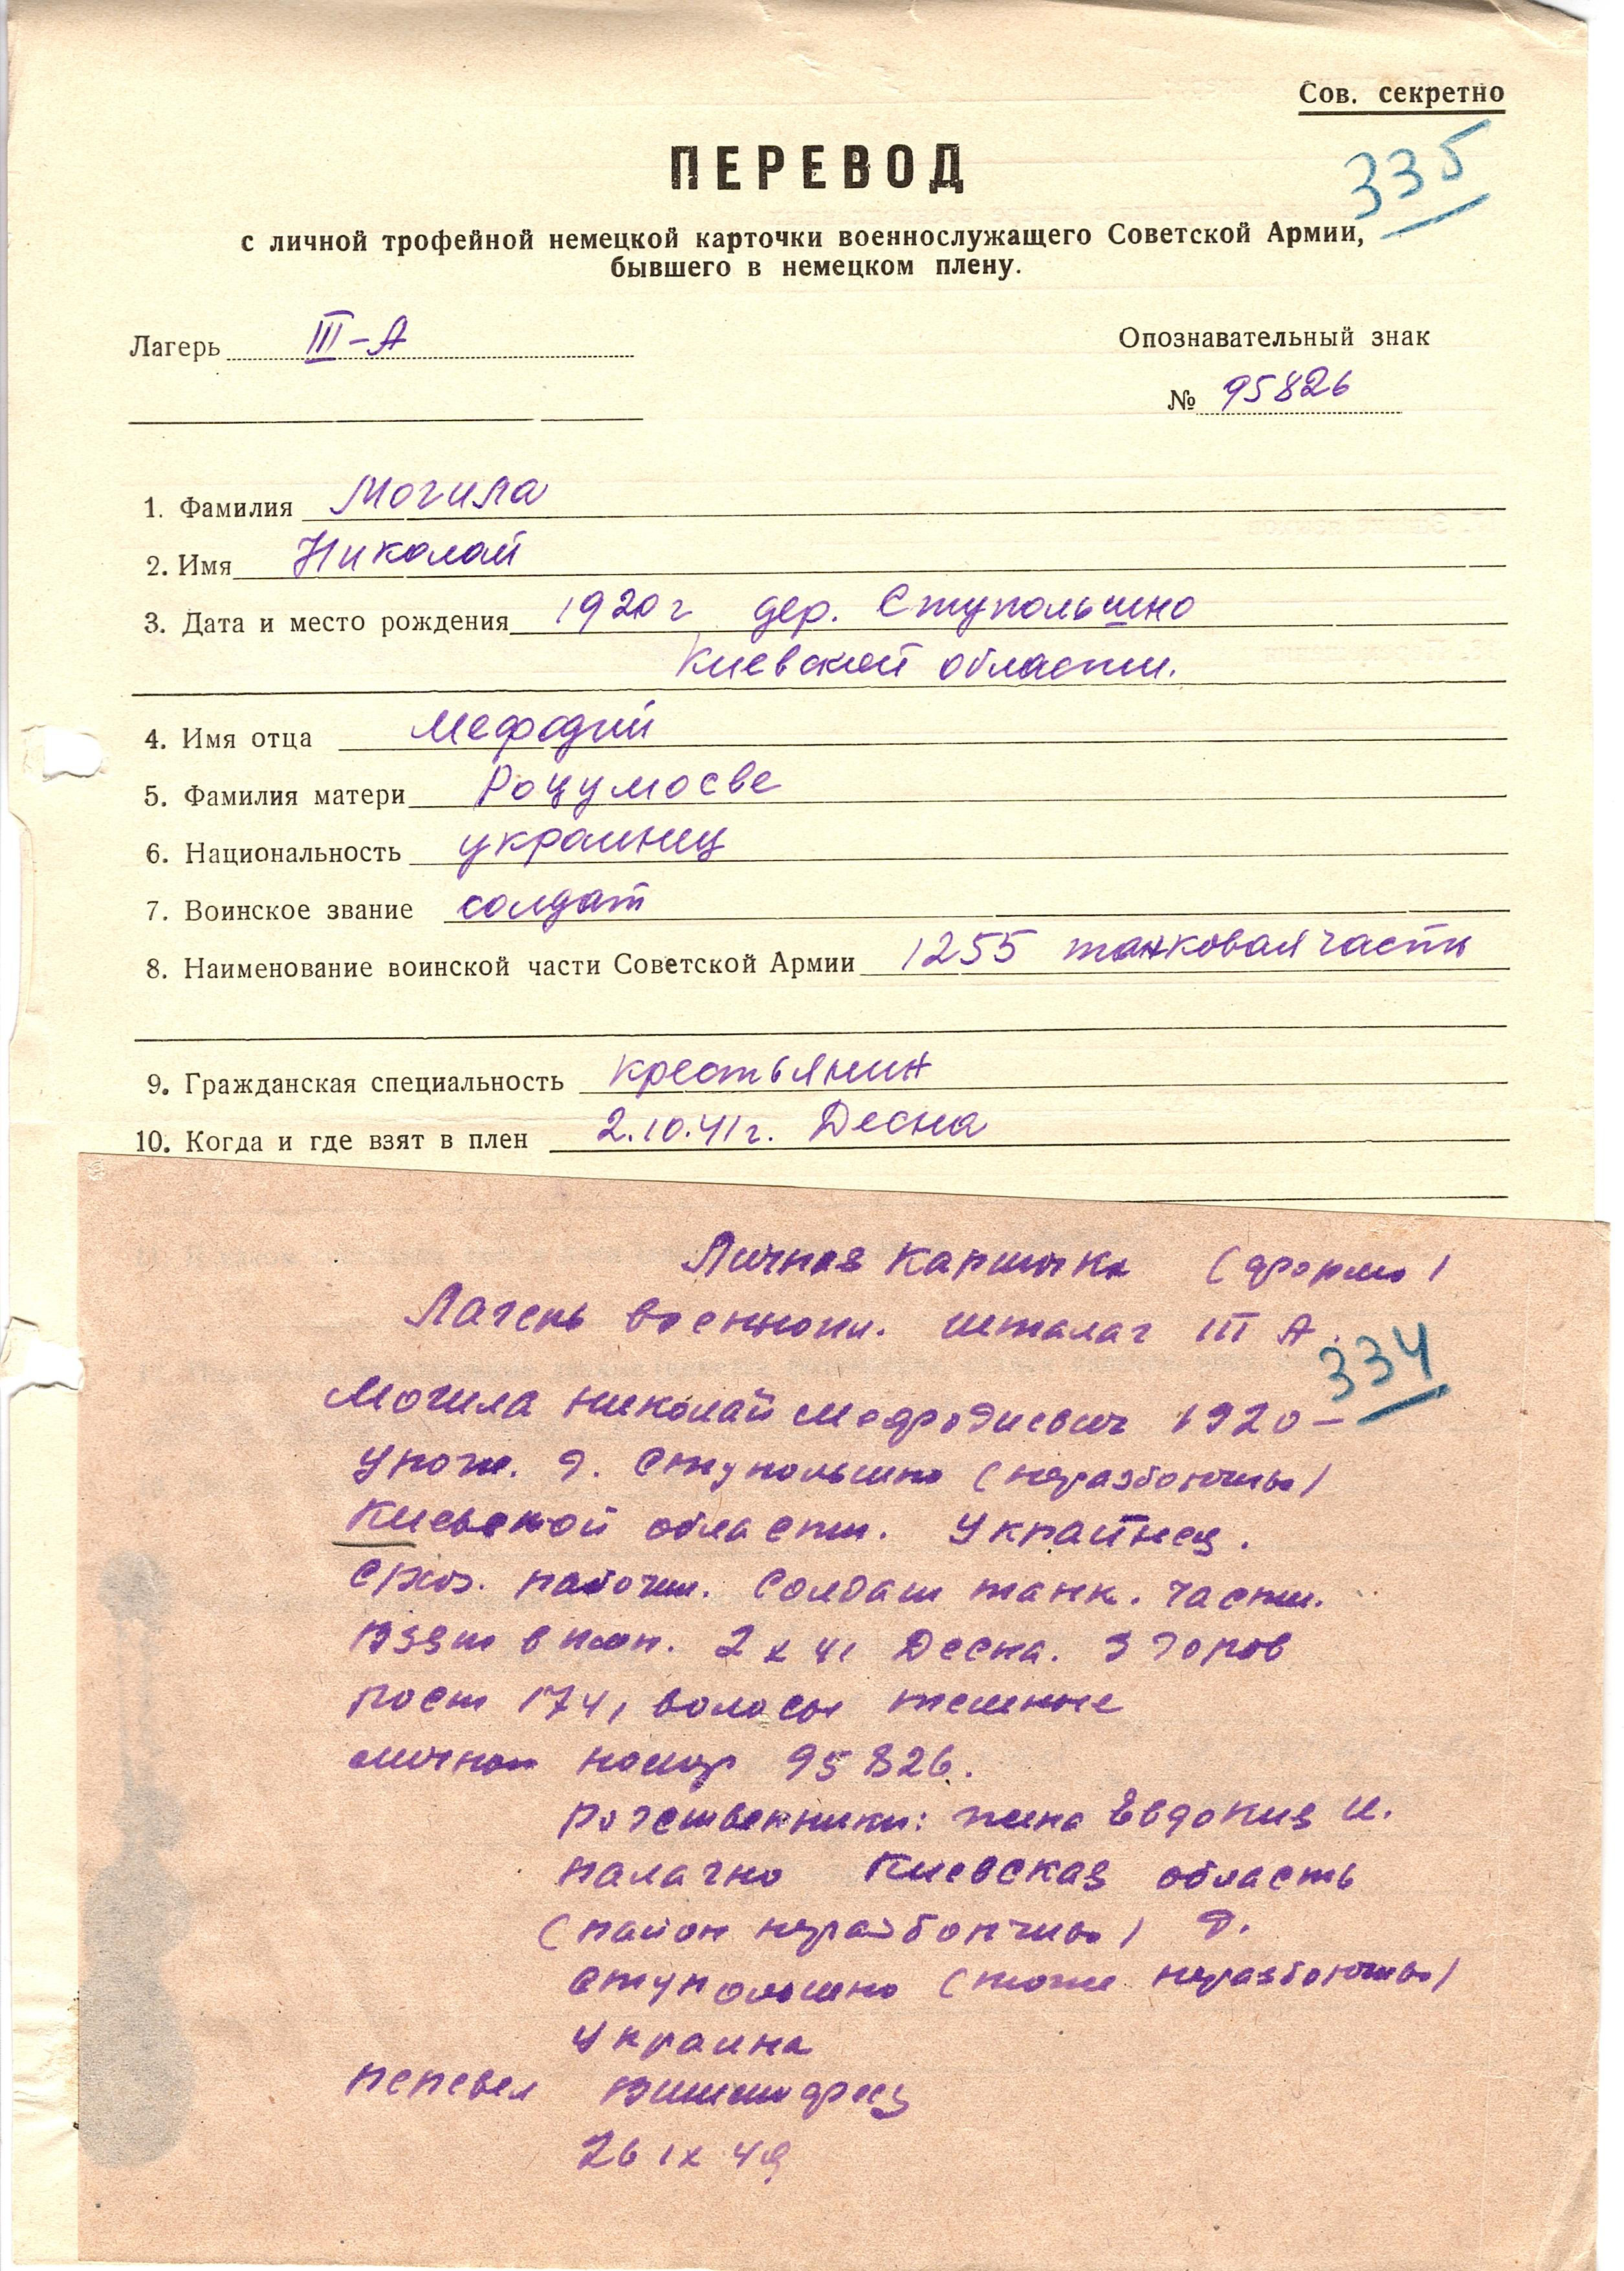 Сов. секретно
ПЕРЕВОД
335
с личной трофейной немецкой карточки военнослужащего Советской Армии,
бывшего в немецком плену.
Лагерь III-А
Опознавательный знак
№ 95826
1. Фамилия Могила
2. Имя Николай
3. Дата и место рождения 1920 г дер. Ступольшно
Киевской области.
4. Имя отца Мефодий
5. Фамилия матери Роцумосве
6. Национальность украинец
7. Воинское звание солдат
8. Наименование воинской части Советской Армии 1255 танковая часть
9. Гражданская специальность крестьянин
10. Когда и где взят в плен 2.10.41 г. Десна
Личная карточка (форма)
Лагерь военнопл. шталаг III А.
334
Могила Николай Мефодиевич 1920 –
Урож. д. Ступольшно (неразборчиво)
Киевской области. Украинец.
с/хоз. рабочий. Солдат танк. части.
Взят в плен. 2 X 41 Десна. Здоров
Рост 174, волосы темные
личной номер 95826.
Родственники: жена Евдокия И.
Палачно Киевская область
(район неразборчиво) д.
Ступольшно (тоже неразборчиво)
Украина
Перевел
26 IX 49